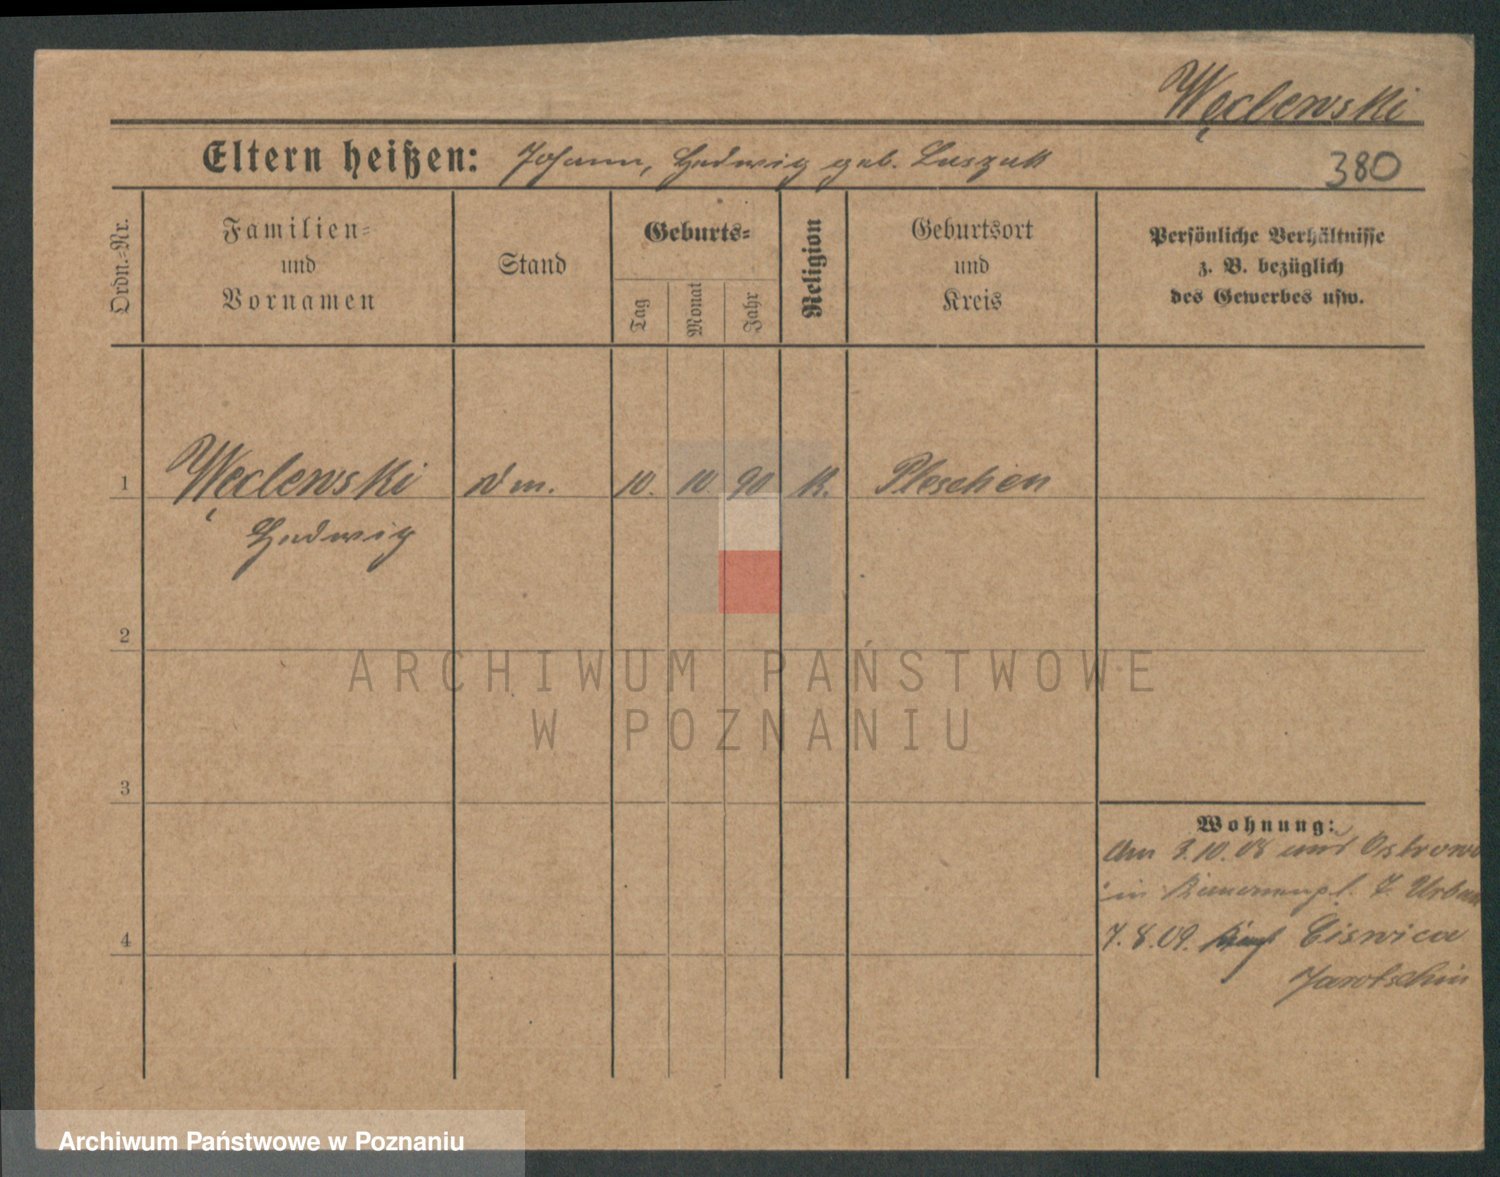 Węclewski
Eltern heißen: Johann, Hedwig geb. Laszak
380
Ordn.-Nr.
Familien- und Vornamen
Stand
Geburts-
Tag
Monat
Jahr
Religion
Geburtsort und Kreis
Persönliche Verhältnisse
z. B. bezüglich
des Gewerbes usw.
1 Węclewski 10. 10 90 K. Pleschen
Hedwig
2
3
4
Wohnung:
Am 3.10.08 aus Ostrowo
in
7.8.09. Ciswica
Jarotschin
ARCHIWUM PAŃSTWOWE
W POZNANIU
Archiwum Państwowe w Poznaniu